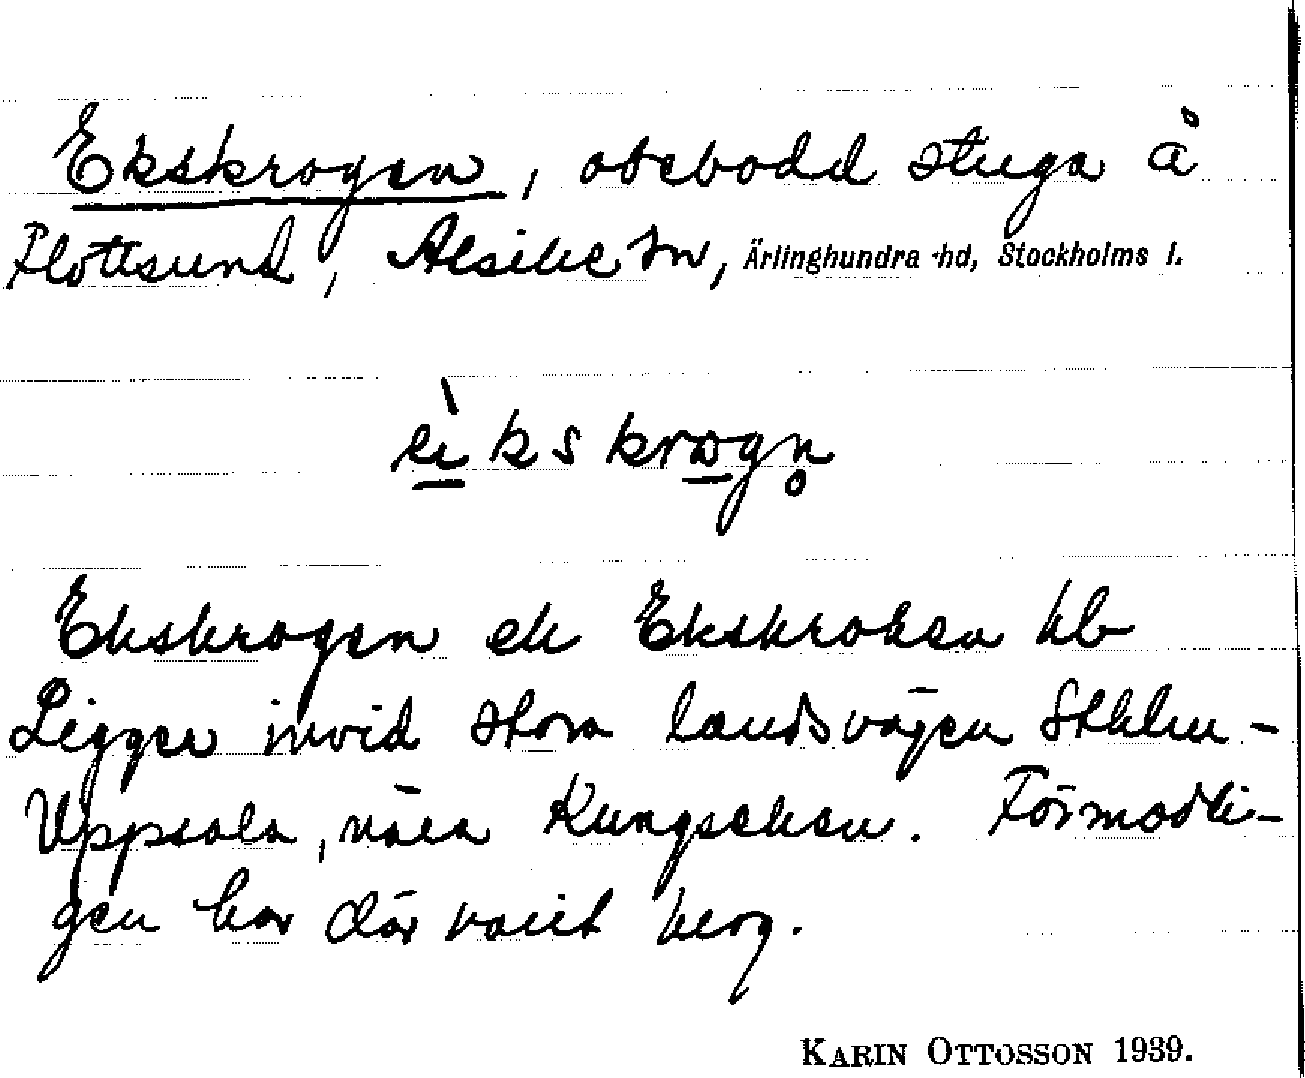 Ekskrogen, obebodd stuga å
Flottsund, Alsike sn, Ärlinghundra hd, Stockholms l.
Ekskrogen ek Ekskroken kb
Ligger invid stora landsvägen Sthlm-
Uppsala, nära Kungseken. Förmodli-
gen har där varit krog.
KARIN OTTOSSON 1939.